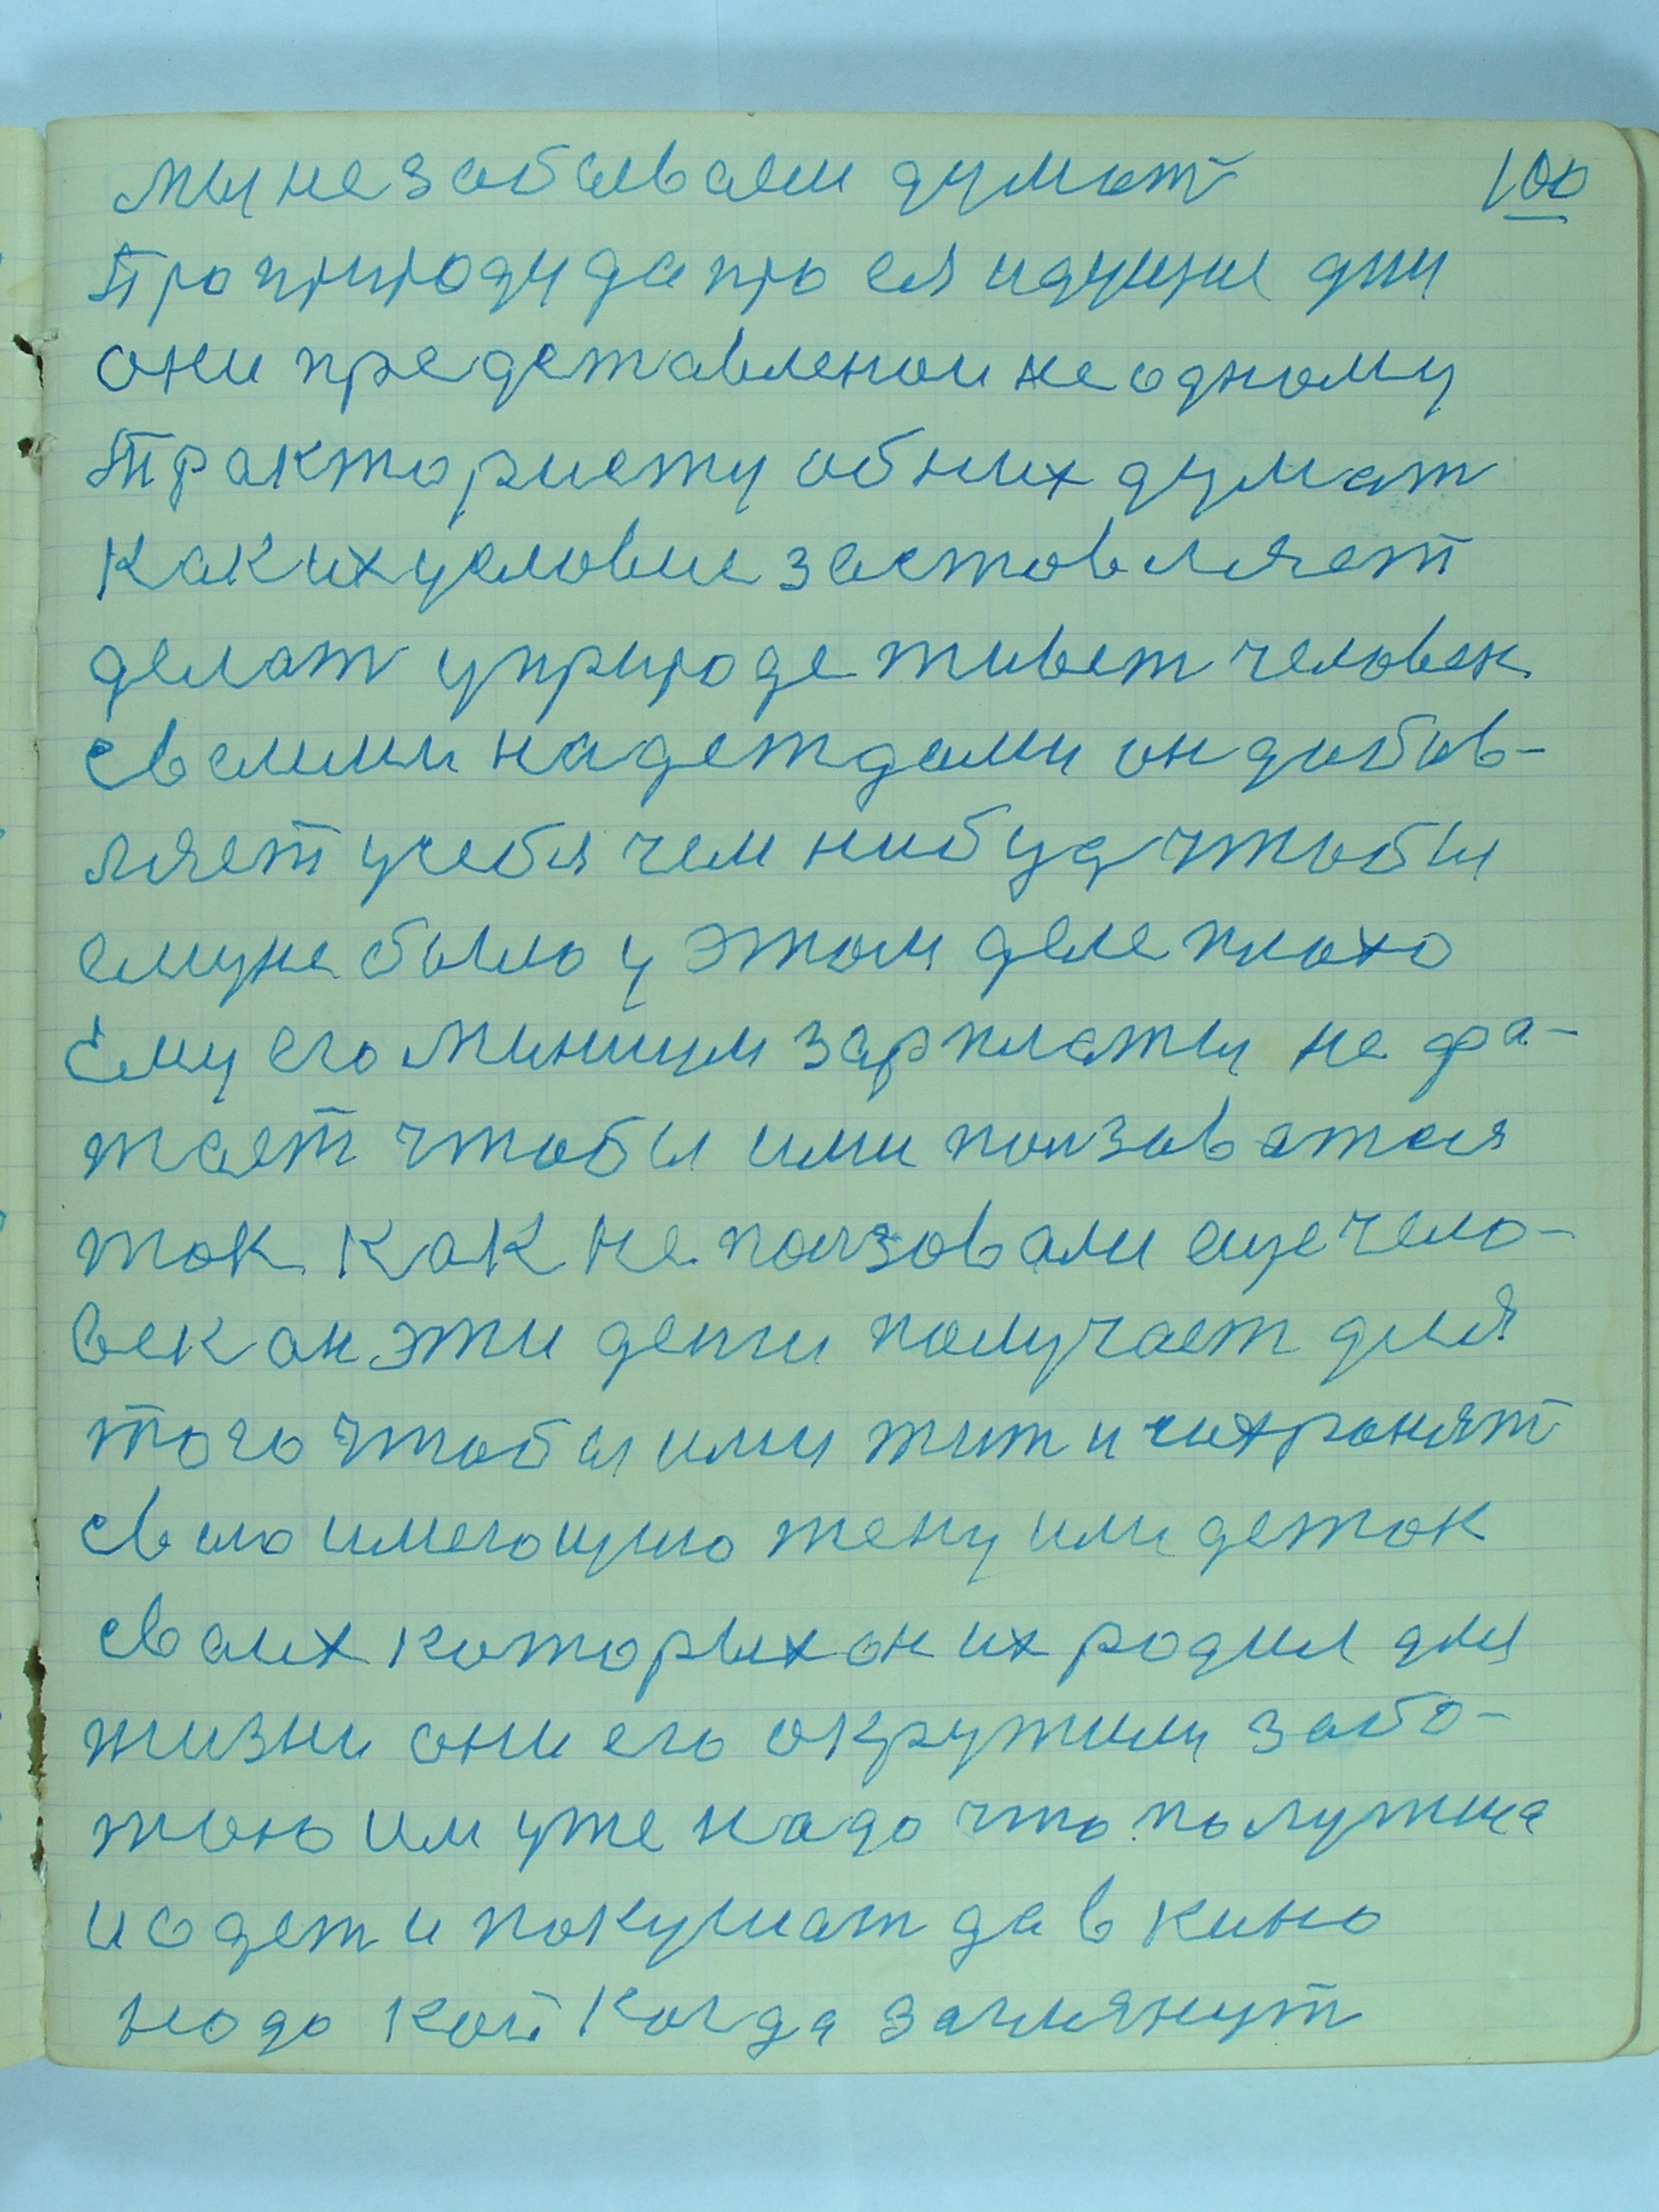 мы не забываем думат 100
про природу да про ея идущие дни
они представленои не одному
трактористу об них думат
как их условие заставляет
делат у природе живет человек
сваими надеждами он добав-
ляет у себя чем нибуд чтобы
ему не было у этом деле плохо
Ему его миниум зарплаты не фа-
тает чтобы ими ползоватся
так как не ползовали еще чело-
век он эти денги получает для
того чтобы ими жит и сихронят
сваю имеющию жену или деток
сваих которых он их родил для
жизни они его окружили забо-
тою им уже надо что полутше
и одет и покушат да в кино
надо кой когда заглянут